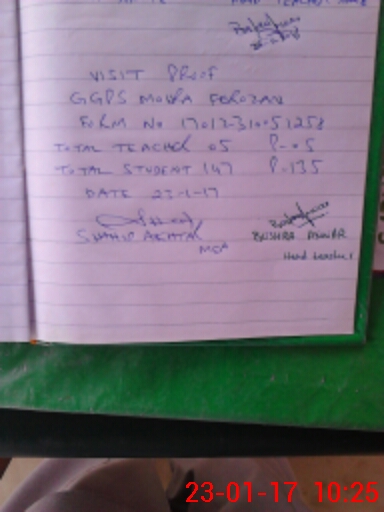 VISIT PROOF
GGPS MOHRA FEROZAN
FORM No 17013-310051258
TOTAL TEACHER 05 P-05
TOTAL STUDENT 147 P.135
DATE 23-1-17
SHAHID AKHTAR
MEA
BUSHRA
Head teacher
23-01-17 10:25